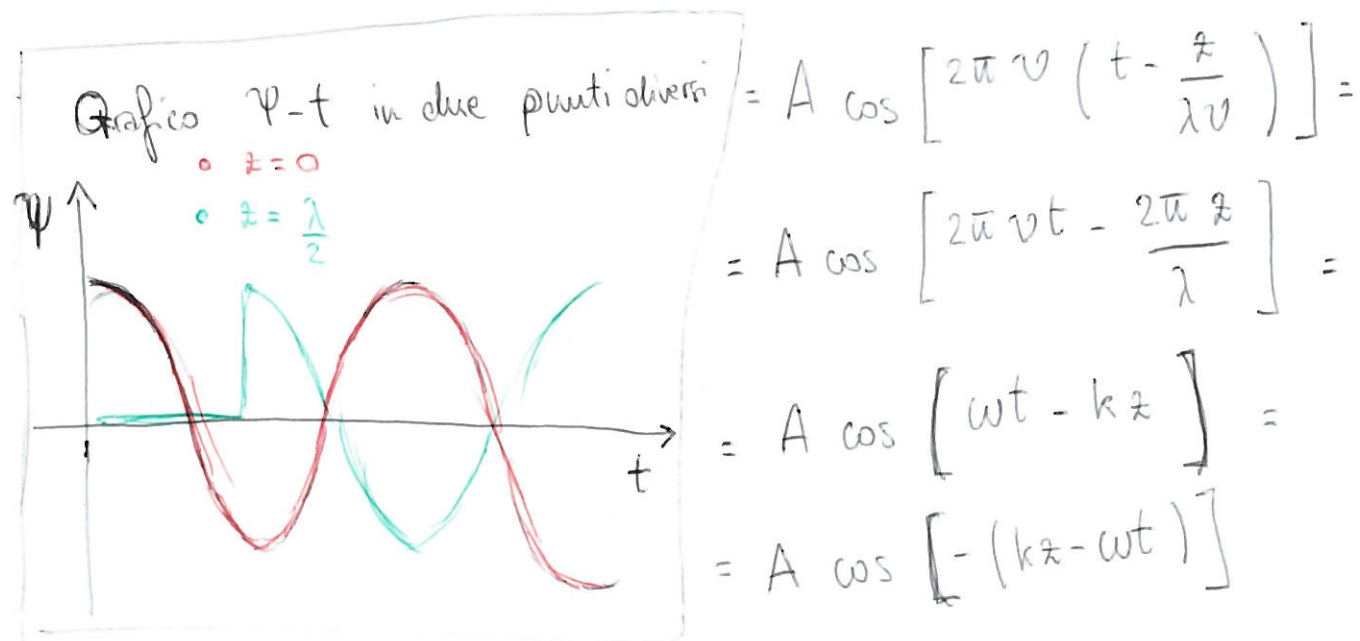 Grafico Ψ-t in due punti diversi
• z = 0
• z = λ/2
Ψ
t
= A cos [2π ν (t - z/λν)] =
= A cos [2π νt - 2π z/λ] =
= A cos [ωt - kz] =
= A cos [-(kz-ωt)]